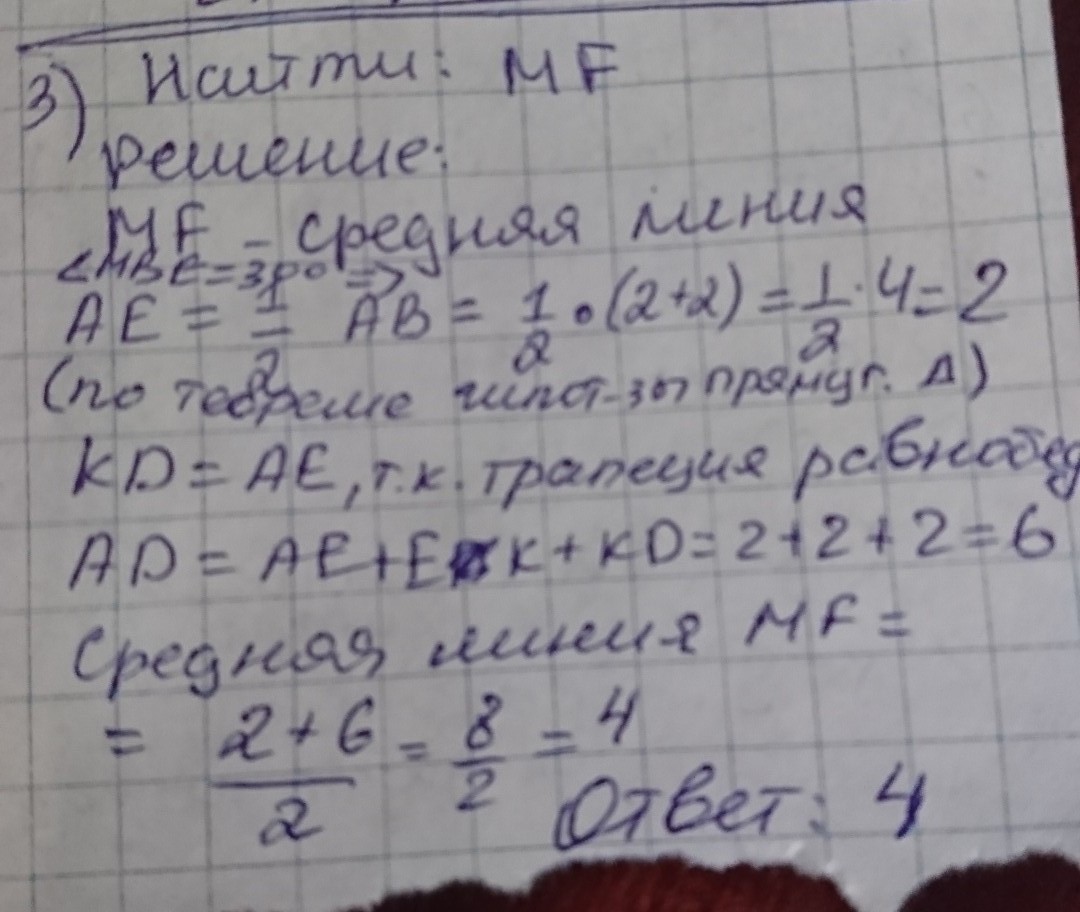 3) Найти: MF
решение:
MF - средняя линия
<MBE=30° =>
AE = 1/2 AB = 1/2 • (2+2) = 1/2 · 4 = 2
(по теореме гипот-зы прямуг. Δ)
KD = AE, т.к. трапеция равнобед
AD = AE + EK + KD = 2 + 2 + 2 = 6
Средняя линия MF =
= 2+6/2 = 8/2 = 4
Ответ: 4